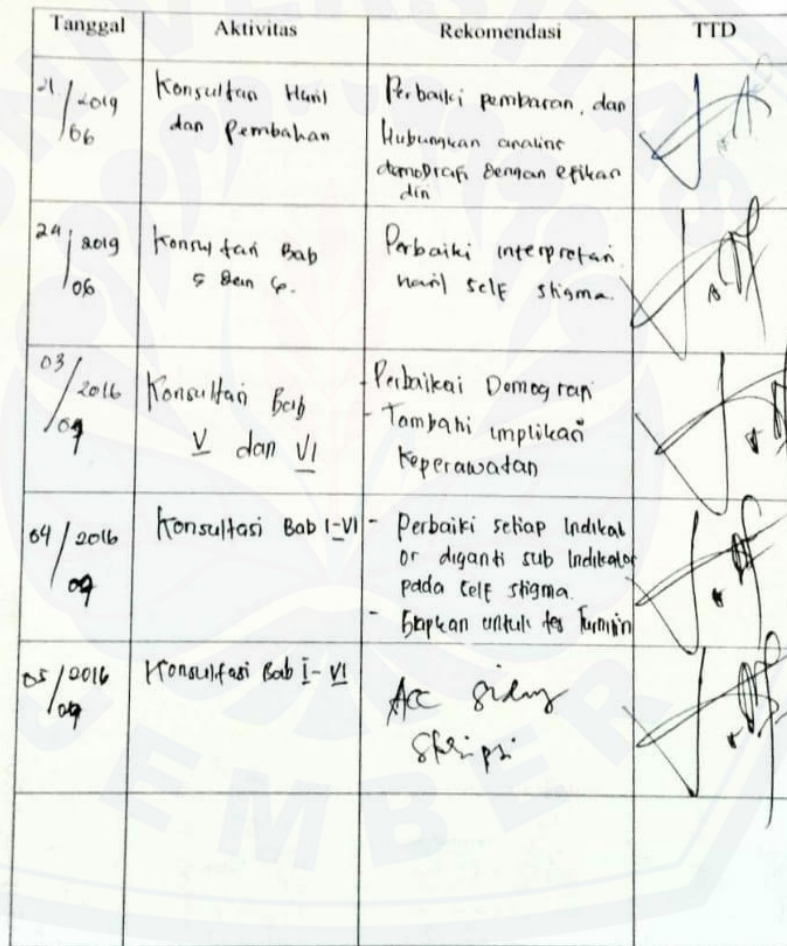 Tanggal Aktivitas Rekomendasi TTD
21 / 2019 / 06
Konsultasi Hasil
dan Pembahan
Perbaiki pembaran, dan
Hubungkan analisis
demografi Dengan efikasi
diri
24 / 2019 / 06
Konsultasi Bab
5 Dan 6.
Perbaiki interpretasi
hasil self stigma.
03 / 2016
Konsultasi Bab
V dan VI
- Perbaikai Demografi
- Tambahi implikasi
Keperawatan
04 / 2016
Konsultasi Bab I-VI
- Perbaiki setiap Indikat
or diganti sub Indikator
pada Self stigma.
- Siapkan untuk tes Turnitin
05 / 2016
Konsultasi Bab I-VI
Acc Sidang
Skripsi
UNIVERSITAS
JEMBER